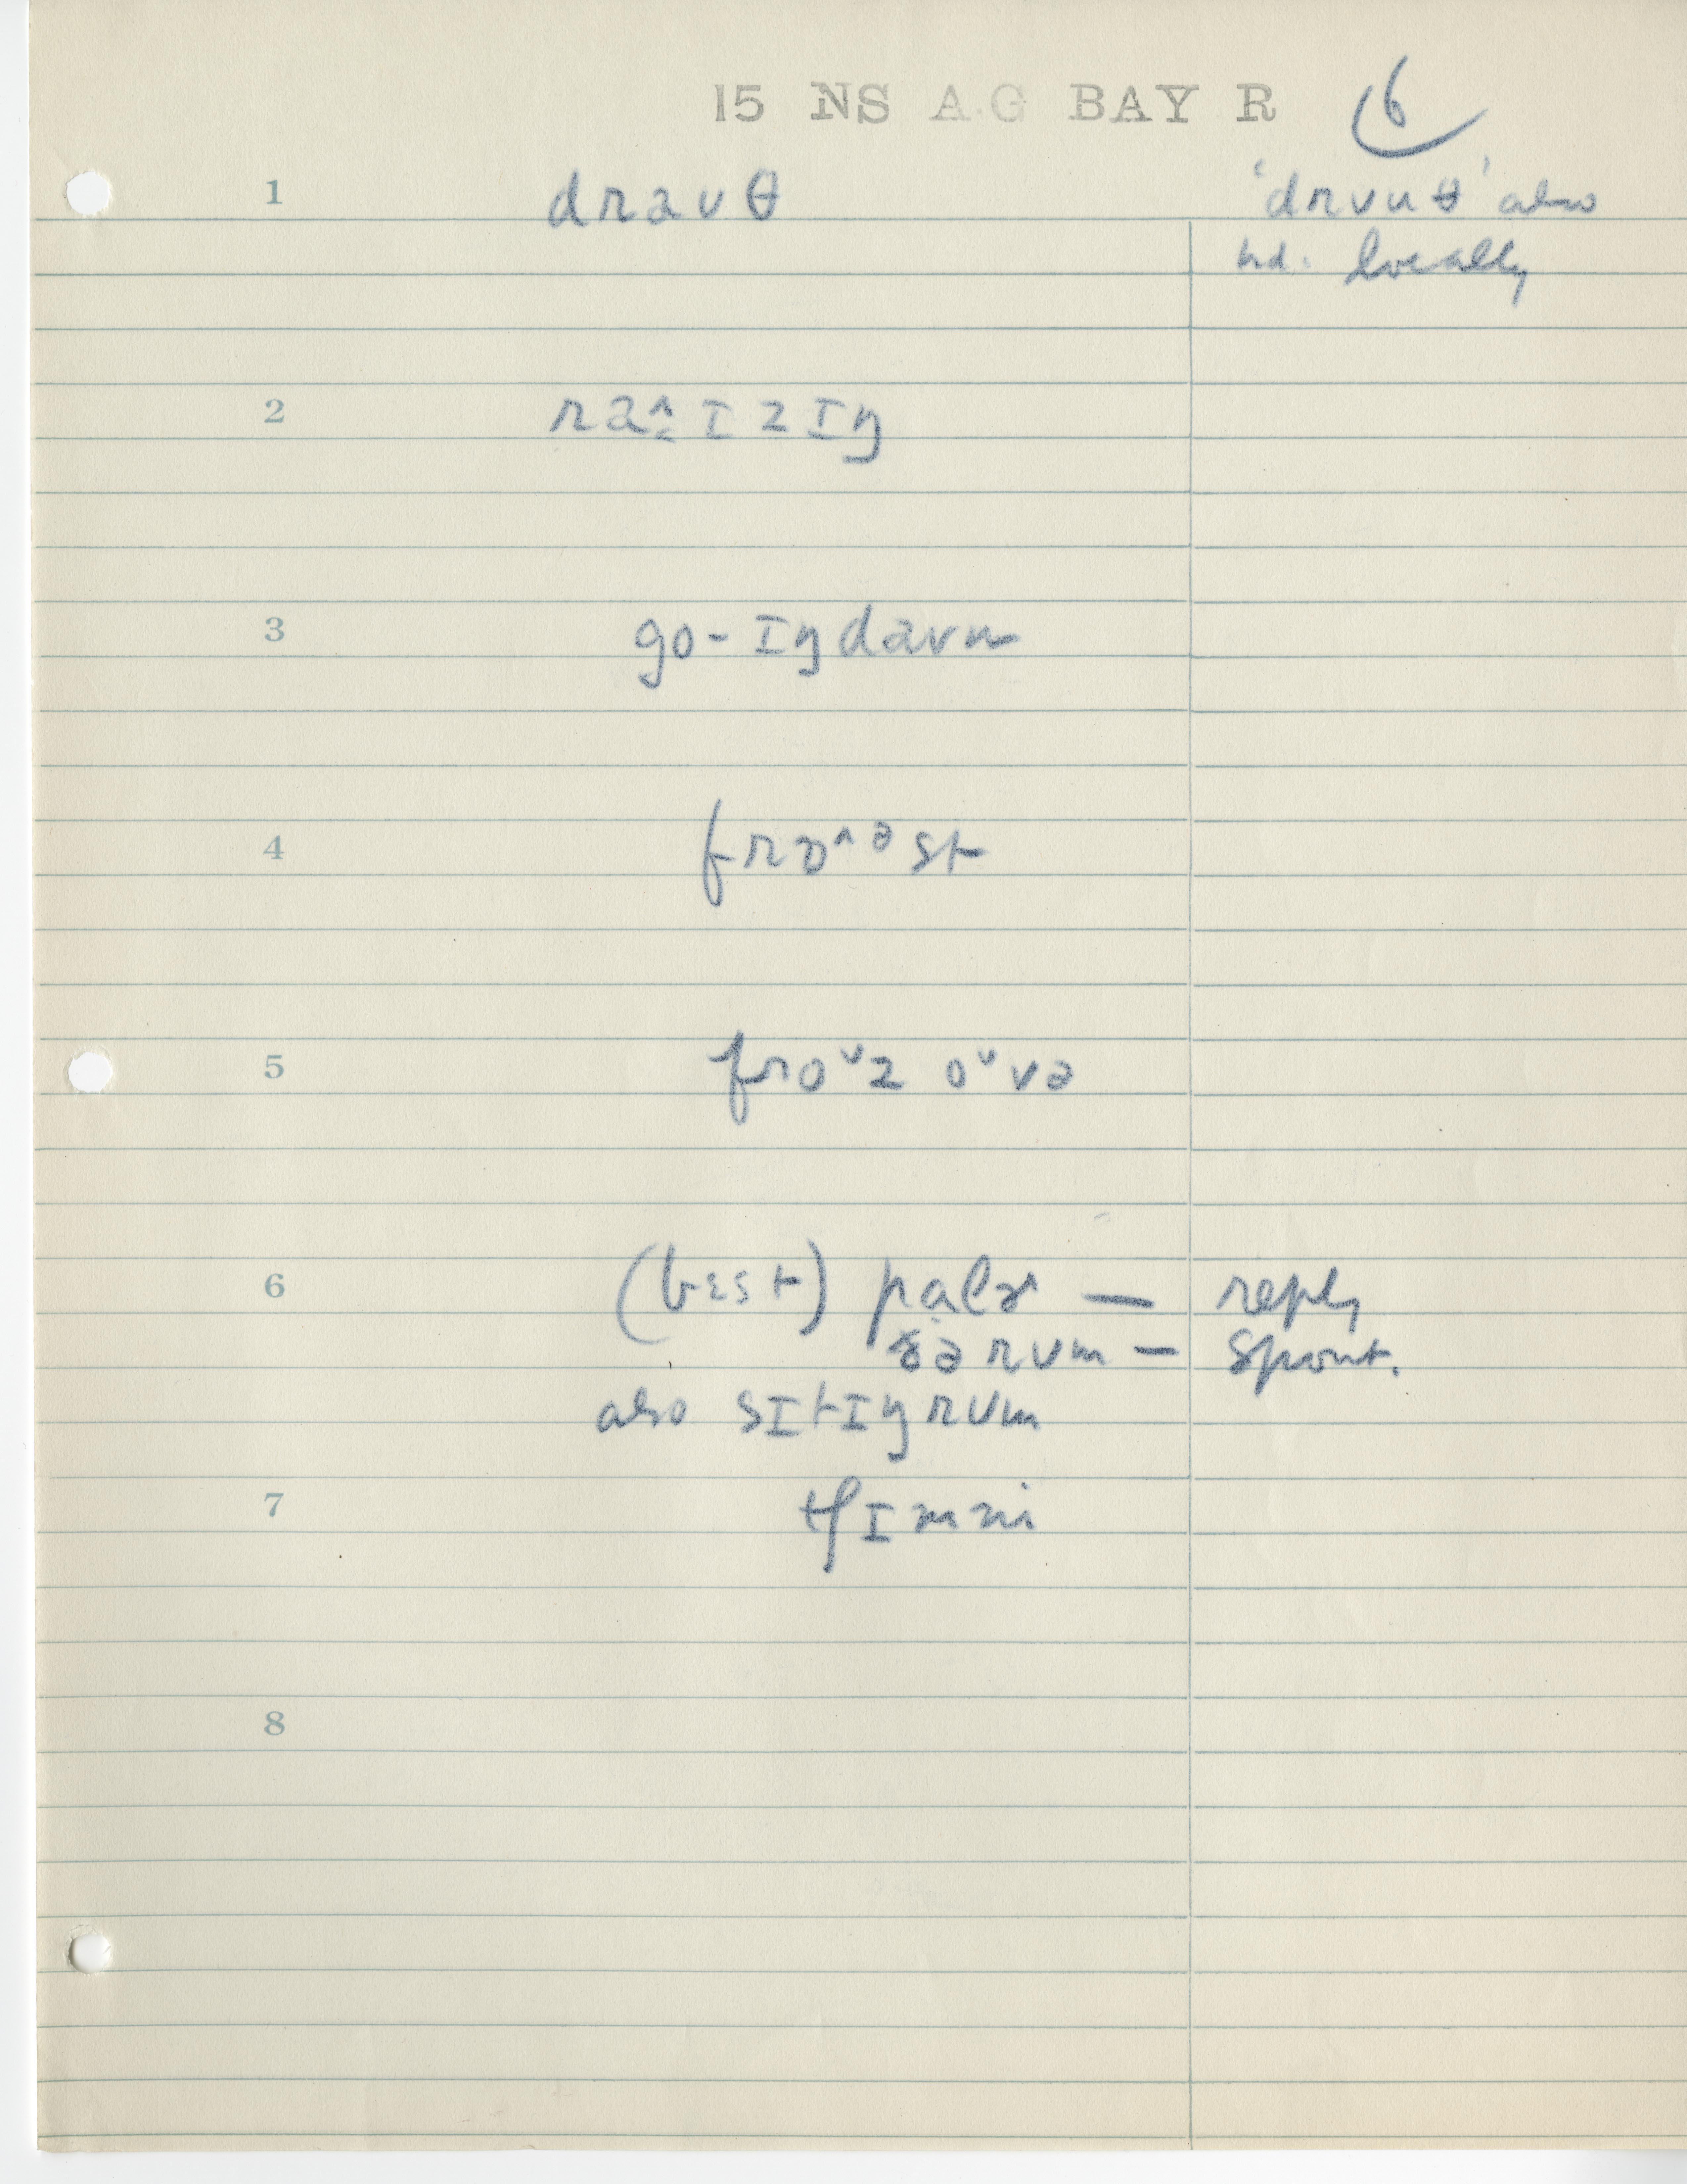 15 NS AG BAY R 6
1 draʊθ 'drʊuθ' also
hd. locally
2 ra^ɪzɪŋ
3 go-ɪŋ daʊn
4 frɒ^əst
5 froᵛz oᵛvə
6 (bɛst) palɚ — reply
rʊm — spont.
also sɪtɪŋ rʊm
7 tʃɪmni
8